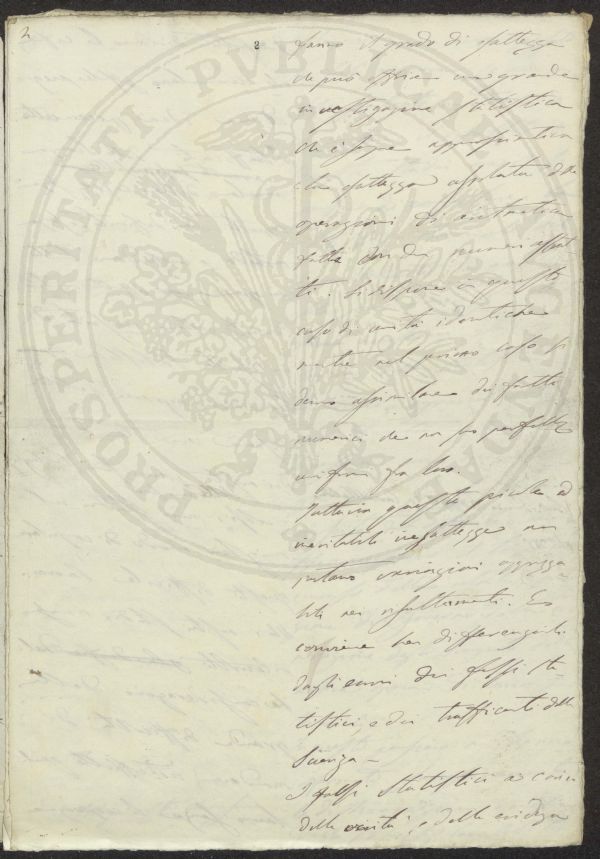 2
2
fanno il grado di esattezza
che può offrire una grande
investigazione statistica
che è sempre approssimativa
alla esattezza assoluta delle
operazioni di aritmetica
fatte con dei numeri astrat
ti. Si dispone in questo
caso di unità identiche
mentre nel primo caso si
deve assimilare dei fatti
numerici che non son perfettte
uniformi fra loro.
Tuttavia queste piccole ed
inevitabili inesattezze non
portano variazioni apprezza-
bili nei risultamenti. Ed
conviene ben differenziarli
dagli errori dei falsi sta-
tistici, e dei trafficanti della
Scienza —
I falsi statistici a
della verità, e della evidenza
PROSPERITATI PVBLICAE